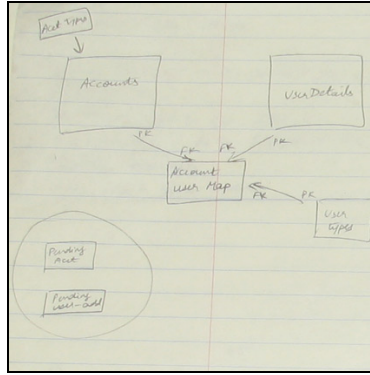 Acct Types
Accounts
User Details
PK
PK
FK
FK
Account
User Map
PK
FK
User
Types
Pending
Acct
Pending
user-add